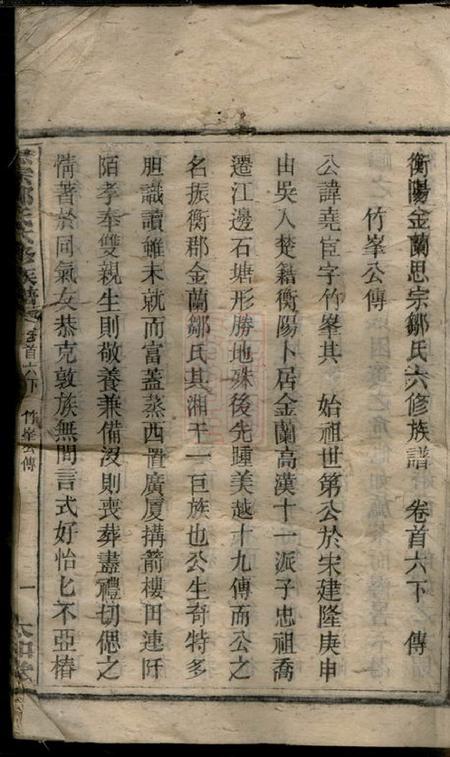 衡陽金蘭思宗鄒氏六修族譜 卷首六下 傳
竹峯公傳
公諱堯臣字竹峯其 始祖世第公於宋建隆庚申
由吳入楚籍衡陽卜居金蘭高漢十一派子忠祖喬
遷江邊石塘形勝地殊後先踵美越十九傳而公之
名振衡郡金蘭鄒氏其湘干一巨族也公生奇特多
胆識讀雖未就而富蓋蒸西置廣廈搆箭樓田連阡
陌孝奉雙親生則敬養兼備沒則喪葬盡禮切偲之
情著於同氣友恭克敦族無間言式好怡匕不亞椿
族譜 卷首六下 竹峯公傳 一